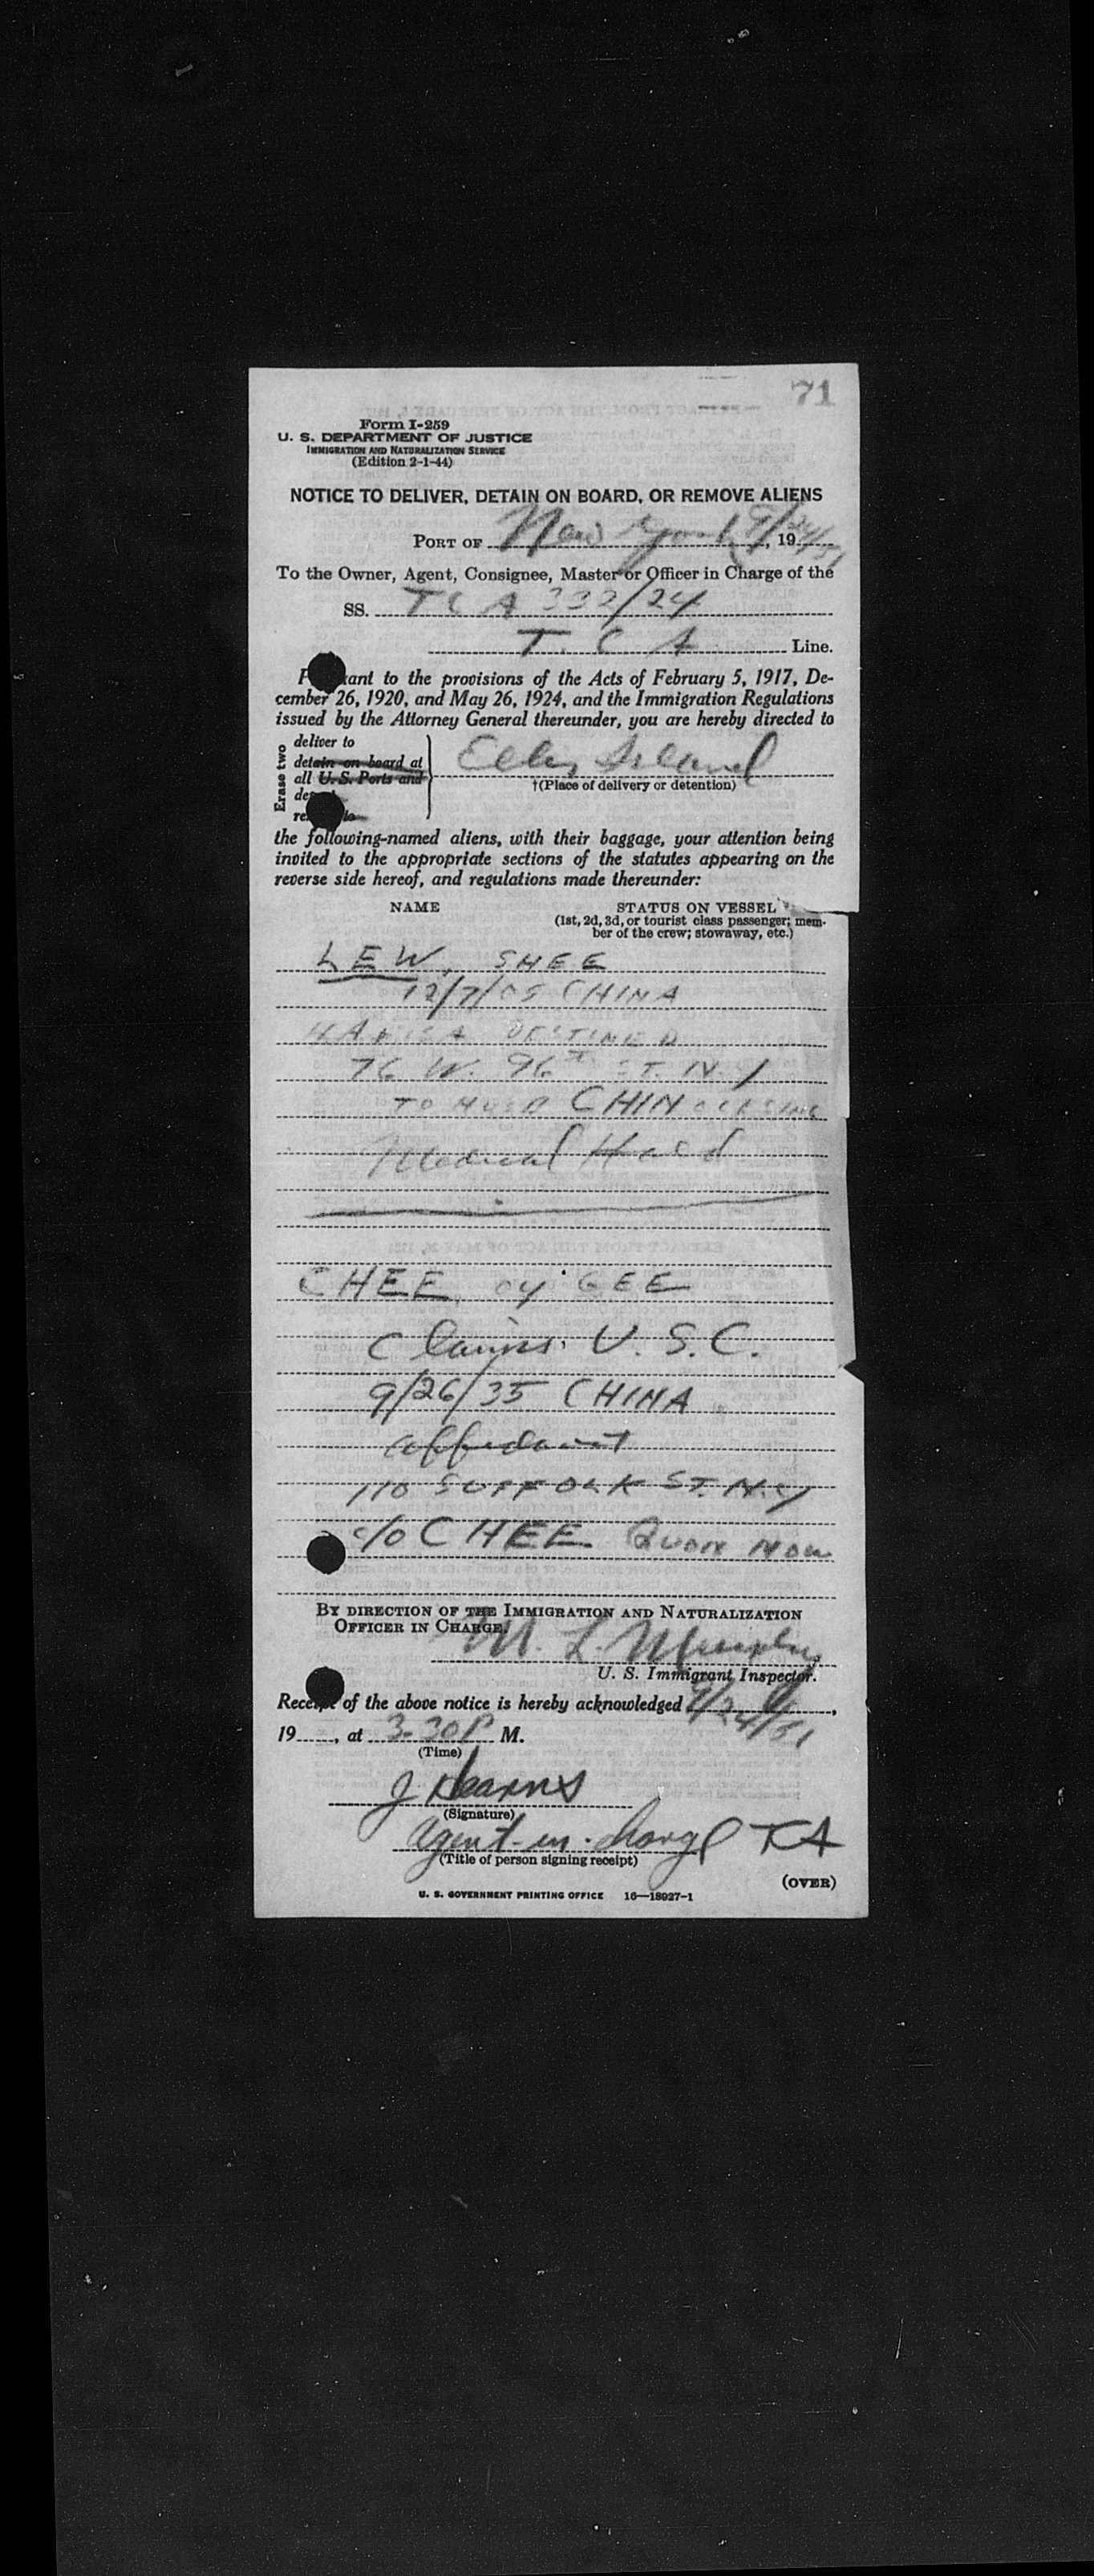 71
Form I-259
U. S. DEPARTMENT OF JUSTICE
IMMIGRATION AND NATURALIZATION SERVICE
(Edition 2-1-44)
NOTICE TO DELIVER, DETAIN ON BOARD, OR REMOVE ALIENS
PORT OF New York 9/24/51, 19
To the Owner, Agent, Consignee, Master or Officer in Charge of the
SS. TCA 332/24
T. C A Line.
ant to the provisions of the Acts of February 5, 1917, De-
cember 26, 1920, and May 26, 1924, and the Immigration Regulations
issued by the Attorney General thereunder, you are hereby directed to
Erase two
deliver to
detain on board at
all U. S. Ports and
Ellis Island
†(Place of delivery or detention)
the following-named aliens, with their baggage, your attention being
invited to the appropriate sections of the statutes appearing on the
reverse side hereof, and regulations made thereunder:
NAME STATUS ON VESSEL
(1st, 2d, 3d, or tourist class passenger; mem-
ber of the crew; stowaway, etc.)
LEW, SHEE
12/7/05 CHINA
DESTINED
76 W. 96 ST. N.Y
TO CHIN
Medical Hold
CHEE, OY GEE
Claims U. S. C.
9/26/35 CHINA
affidavit
110 SUFFOLK ST. N.Y
c/o CHEE QUON NOW
BY DIRECTION OF THE IMMIGRATION AND NATURALIZATION
OFFICER IN CHARGE.
M. L. Murphy
U. S. Immigrant Inspector.
Receipt of the above notice is hereby acknowledged 9/24/51,
19, at 3-30 P M.
(Time)
J Kearns
(Signature)
Agent-in-charge TCA
(Title of person signing receipt)
(OVER)
U. S. GOVERNMENT PRINTING OFFICE 16—18927-1